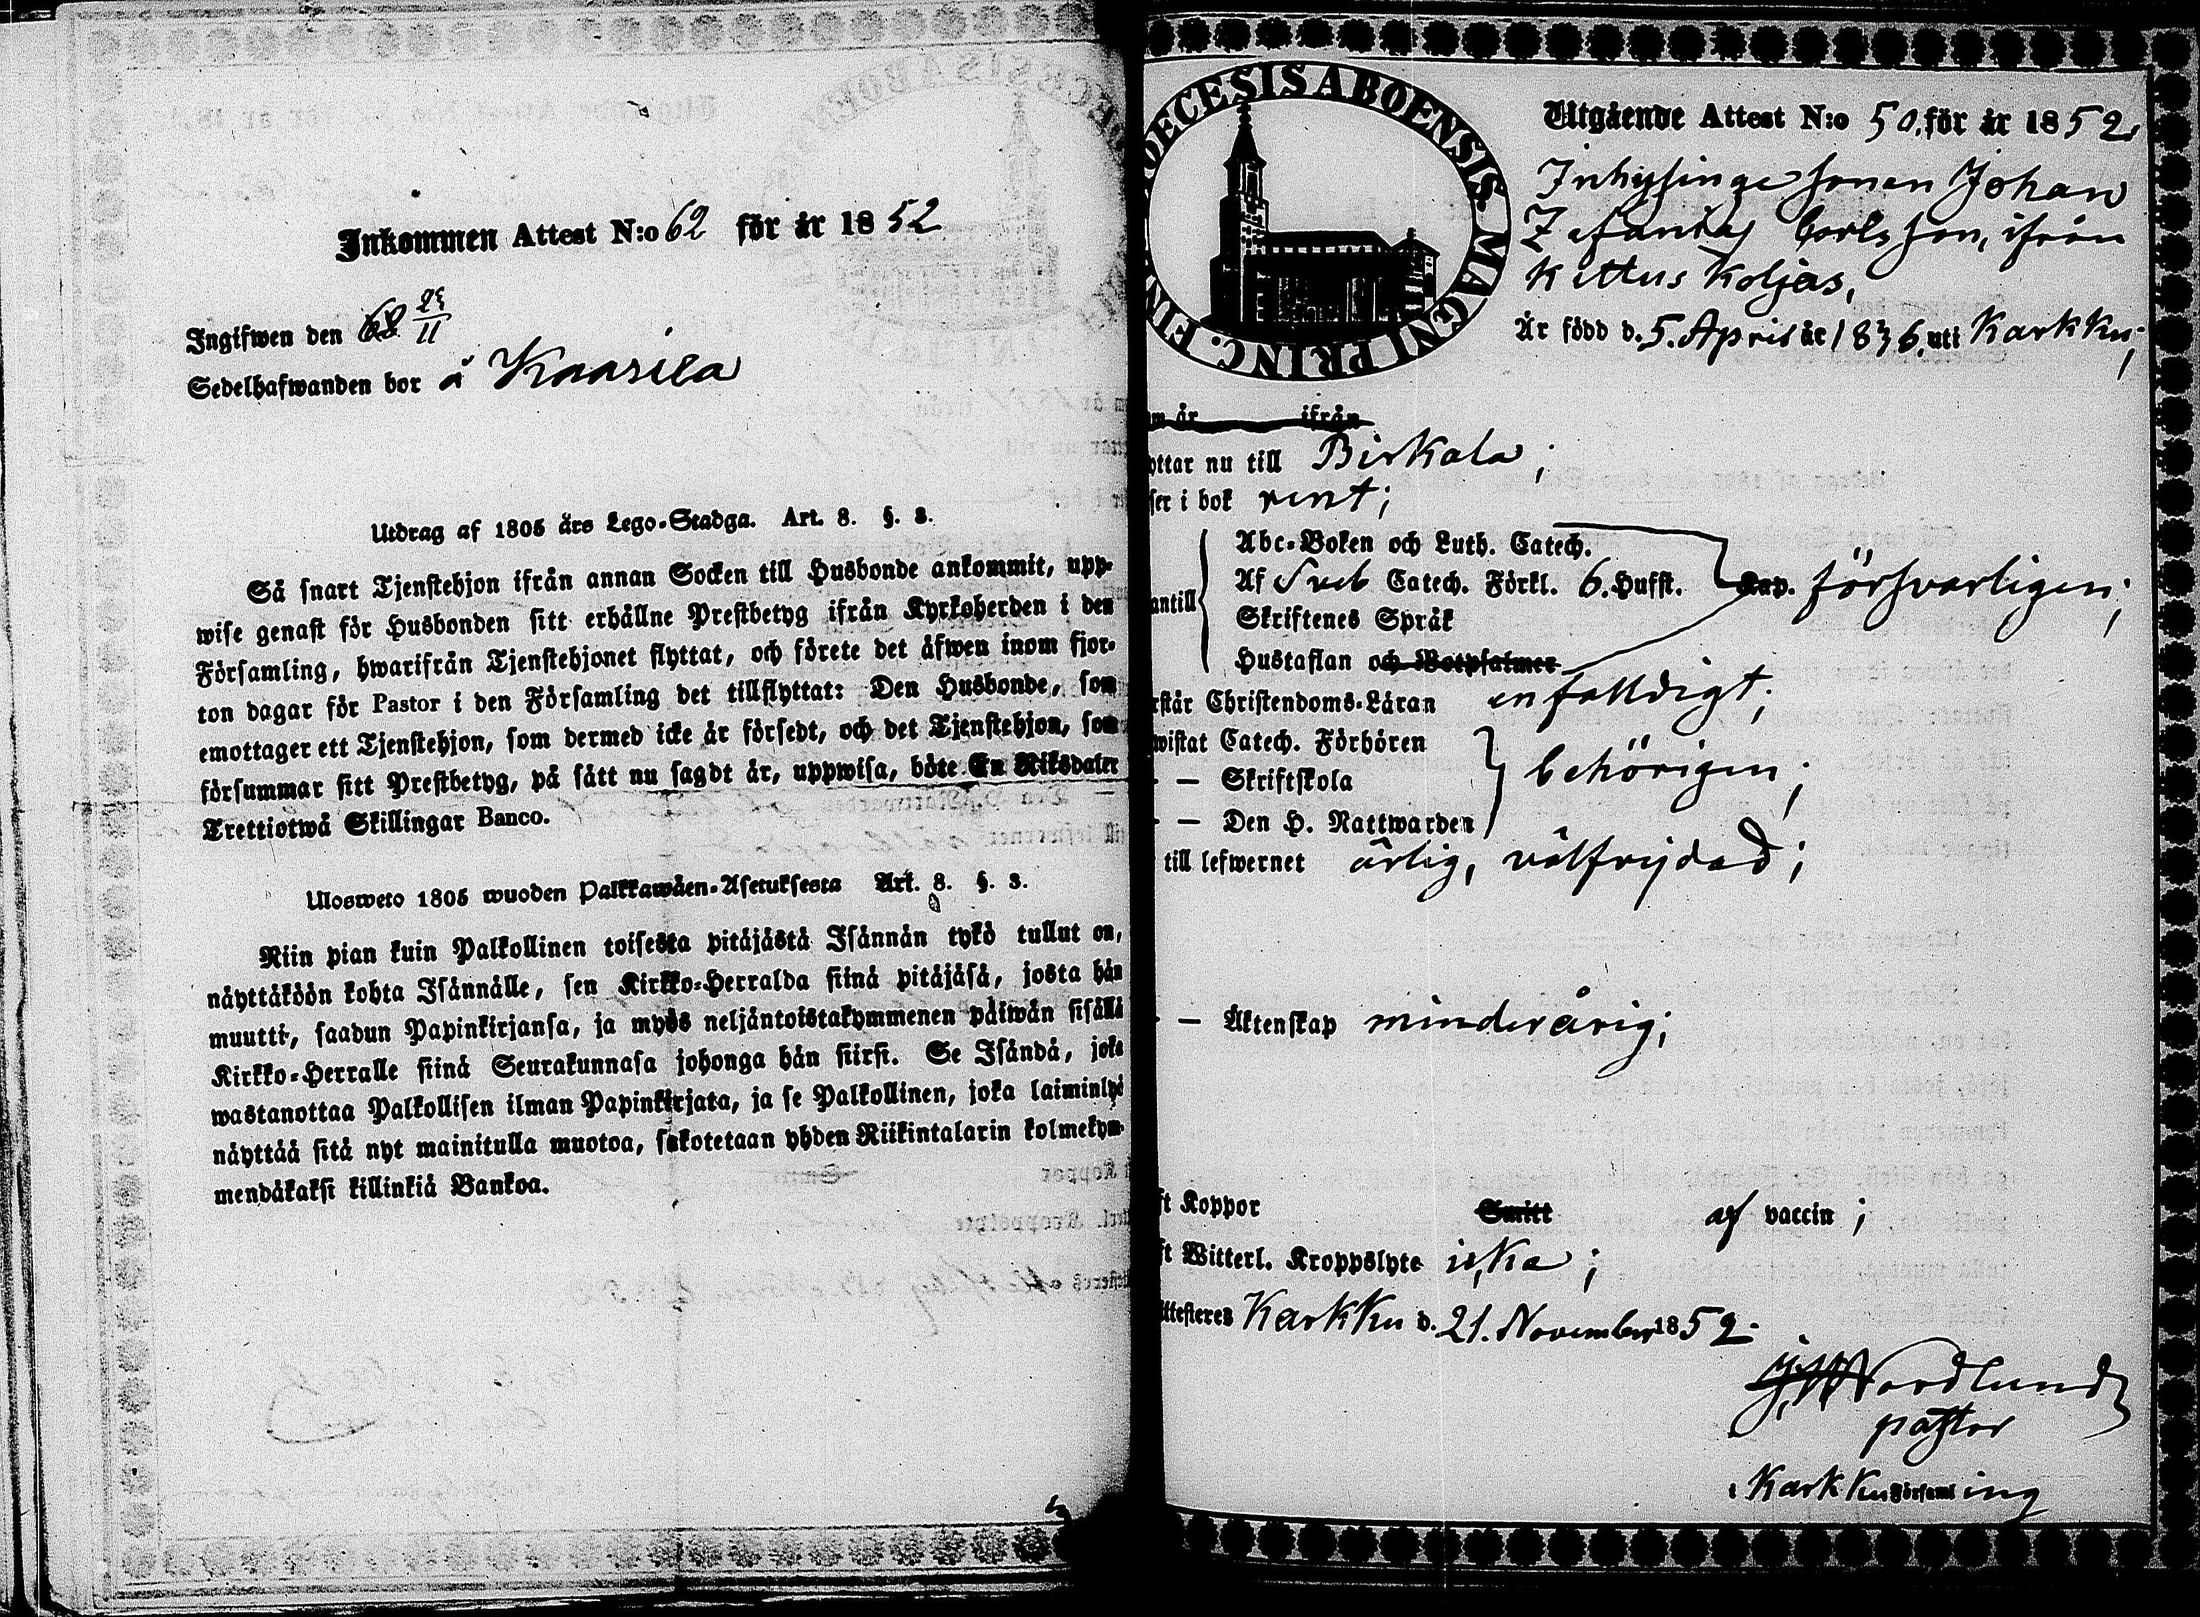 Inkommen Attest N:o 62 för år 1852
Ingifwen den 23/11
Sedelhafwanden bor å Kaarila
Utdrag af 1805 års Lego-Stadga. Art. 8. §. 3.
Så snart Tjenstehjon ifrån annan Socken till Husbonde ankommit, upp-
wise genast för Husbonden sitt erhållne Prestbetyg ifrån Kyrkoherden i den
Församling, hwarifrån Tjenstehjonet flyttat, och förete det äfwen inom fjor-
ton dagar för Pastor i den Församling det tillflyttat: Den Husbonde, som
emottager ett Tjenstehjon, som dermed icke är försedt, och det Tjenstehjon, som
försummar sitt Prestbetyg, på sätt nu sagdt är, uppwisa, böte En Riksdaler
Trettiotwå Skillingar Banco.
Ulosweto 1805 wuoden Palkkawäen-Asetuksesta Art. 8. §. 3.
Niin pian kuin Palkollinen toisesta pitäjästä Isännän tykö tullut on,
näyttäköön kohta Isännälle, sen Kirkko-Herralda siinä pitäjäsä, josta hän
muutti, saadun Papinkirjansa, ja myös neljäntoistakymmenen päiwän sisällä
Kirkko-Herralle siinä Seurakunnasa johonga hän siirsi. Se Isändä, joka
wastanottaa Palkollisen ilman Papinkirjata, ja se Palkollinen, joka laiminlyö
näyttää sitä nyt mainitulla muotoa, sakotetaan yhden Riikintalarin kolmekym-
mendäkaksi killinkiä Bankoa.
DIOECESIS ABOENSIS. MAGNI PRINC. FIN
Utgående Attest N:o 50. för år 1852.
Inhysinge sonen Johan
Zefanias Carlsson, ifrån
Kittus Koljas,
Är född d. 5. April år 1836. uti Karkku;
om år ifrån
yttar nu till Birkala;
ser i bok rent;
Abc-Boken och Luth. Catech.
Af Sveb Catech. Förkl. 6. Hufst. Cap. försvarligen;
antill
Skriftenes Språk
Hustaflan och Botpsalmer
rstår Christendoms-Läran enfaldigt;
wistat Catech. Förhören
— — Skriftskola behörigen;
— — Den H. Nattwarden
till lefwernet ärlig, välfrejdad;
— — Äktenskap minderårig;
ft Koppor Smitt af vaccin;
ft Witterl. Kroppslyte icke;
ttesteres Karkku d. 21. November 1852.
Nordlund
pastor
i Karkku Församling